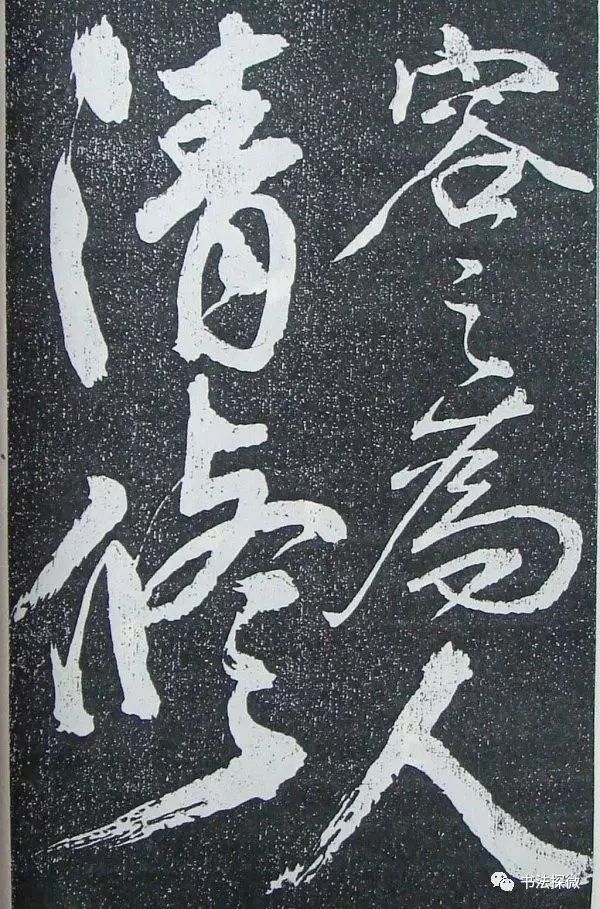 容之为人
清修
书法探微